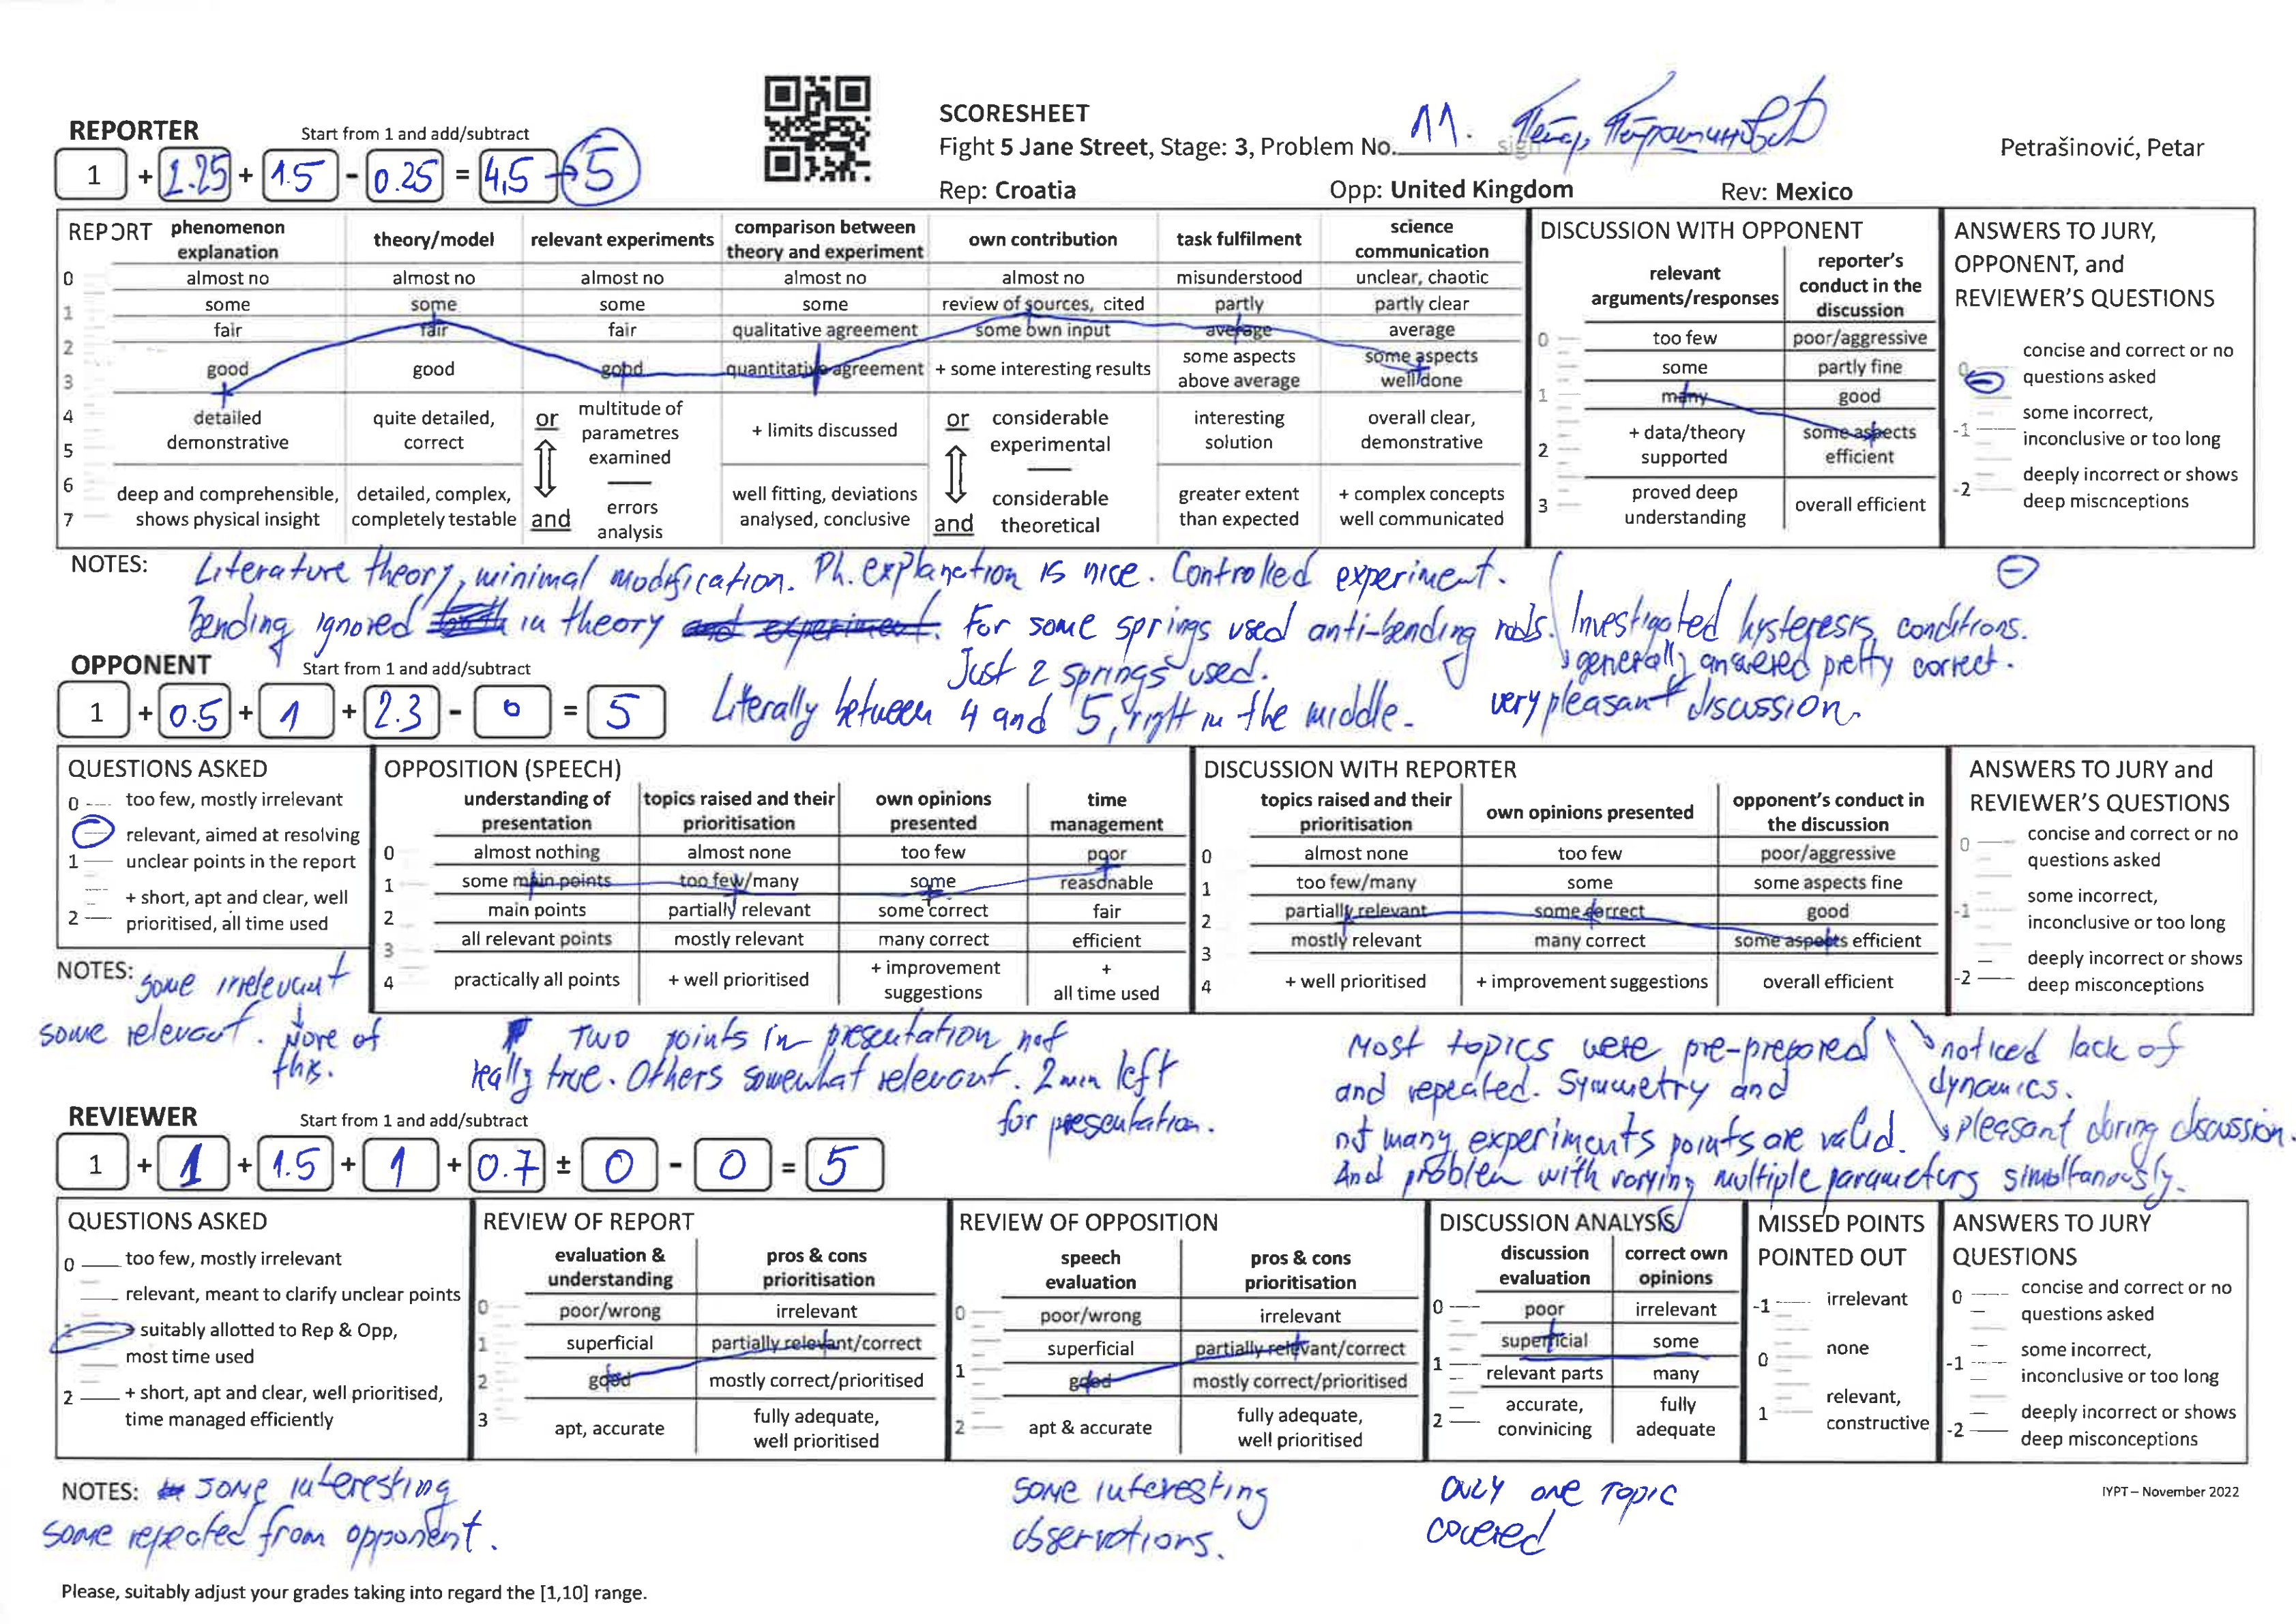 SCORESHEET
REPORTER Start from 1 and add/subtract
Fight 5 Jane Street, Stage: 3, Problem No. 11. Петар Петрашиновић
Petrašinović, Petar
1 + 2.25 + 1.5 - 0.25 = 4,5 → 5
Rep: Croatia Opp: United Kingdom Rev: Mexico
REPORT phenomenon explanation theory/model relevant experiments comparison between theory and experiment own contribution task fulfilment science communication
0 almost no almost no almost no almost no almost no misunderstood unclear, chaotic
1 some some some some review of sources, cited partly partly clear
fair fair fair qualitative agreement some own input average average
2
good good good quantitative agreement + some interesting results some aspects above average some aspects well done
3
4 detailed demonstrative quite detailed, correct or multitude of parametres examined + limits discussed or considerable experimental interesting solution overall clear, demonstrative
5
6 deep and comprehensible, shows physical insight detailed, complex, completely testable and errors analysis well fitting, deviations analysed, conclusive and considerable theoretical greater extent than expected + complex concepts well communicated
7
DISCUSSION WITH OPPONENT
relevant arguments/responses reporter's conduct in the discussion
0 too few poor/aggressive
some partly fine
1 many good
2 + data/theory supported some aspects efficient
3 proved deep understanding overall efficient
ANSWERS TO JURY, OPPONENT, and REVIEWER'S QUESTIONS
0 concise and correct or no questions asked
-1 some incorrect, inconclusive or too long
-2 deeply incorrect or shows deep miscnceptions
NOTES: Literature theory, minimal modification. Ph. explanation is nice. Controlled experiment.
Bending ignored in theory. For some springs used anti-bending rods. Investigated hysteresis, conditions.
Just 2 springs used. generally answered pretty correct.
Literally between 4 and 5, right in the middle. very pleasant discussion.
OPPONENT Start from 1 and add/subtract
1 + 0.5 + 1 + 2.3 - 0 = 5
QUESTIONS ASKED
0 too few, mostly irrelevant
relevant, aimed at resolving
1 unclear points in the report
+ short, apt and clear, well
2 prioritised, all time used
OPPOSITION (SPEECH)
understanding of presentation topics raised and their prioritisation own opinions presented time management
0 almost nothing almost none too few poor
1 some main points too few/many some reasonable
2 main points partially relevant some correct fair
3 all relevant points mostly relevant many correct efficient
4 practically all points + well prioritised + improvement suggestions + all time used
DISCUSSION WITH REPORTER
topics raised and their prioritisation own opinions presented opponent's conduct in the discussion
0 almost none too few poor/aggressive
1 too few/many some some aspects fine
2 partially relevant some correct good
3 mostly relevant many correct some aspects efficient
4 + well prioritised + improvement suggestions overall efficient
ANSWERS TO JURY and REVIEWER'S QUESTIONS
0 concise and correct or no questions asked
-1 some incorrect, inconclusive or too long
-2 deeply incorrect or shows deep misconceptions
NOTES: some irrelevant
some relevant. More of
this.
Two points in presentation not
really true. Others somewhat relevant. 2 min left
for presentation.
Most topics were pre-prepared
and repeated. Symmetry and
not many experiments points are valid.
And problem with varying multiple parameters simultanously.
noticed lack of
dynamics.
pleasant during discussion.
REVIEWER Start from 1 and add/subtract
1 + 1 + 1.5 + 1 + 0.7 ± 0 - 0 = 5
QUESTIONS ASKED
0 too few, mostly irrelevant
relevant, meant to clarify unclear points
1 suitably allotted to Rep & Opp,
most time used
2 + short, apt and clear, well prioritised,
time managed efficiently
REVIEW OF REPORT
evaluation & understanding pros & cons prioritisation
0 poor/wrong irrelevant
1 superficial partially relevant/correct
2 good mostly correct/prioritised
3 apt, accurate fully adequate, well prioritised
REVIEW OF OPPOSITION
speech evaluation pros & cons prioritisation
0 poor/wrong irrelevant
superficial partially relevant/correct
1 good mostly correct/prioritised
2 apt & accurate fully adequate, well prioritised
DISCUSSION ANALYSIS
discussion evaluation correct own opinions
0 poor irrelevant
superficial some
1 relevant parts many
2 accurate, convinicing fully adequate
MISSED POINTS POINTED OUT
-1 irrelevant
0 none
1 relevant, constructive
ANSWERS TO JURY QUESTIONS
0 concise and correct or no questions asked
-1 some incorrect, inconclusive or too long
-2 deeply incorrect or shows deep misconceptions
NOTES: some interesting
some repeated from opponent.
some interesting
observations.
only one topic
covered
IYPT – November 2022
Please, suitably adjust your grades taking into regard the [1,10] range.